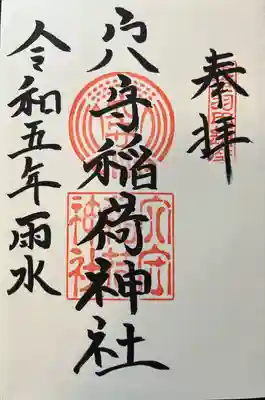 奉拝
穴守稲荷神社
令和五年雨水